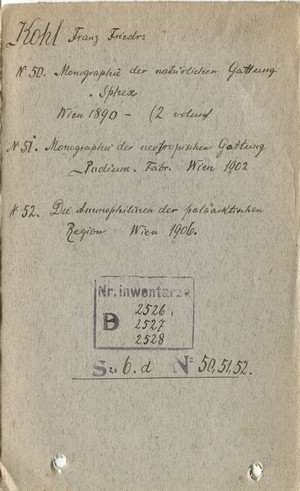 Kohl Franz Friedr:
№ 50. Monographie der natürlichen Gattung
Sphex
Wien 1890 - (2 volum)
№ 51. Monographie der neotropischen Gattung
"Podium" Fabr. Wien 1902
№ 52. Die Ammophilinen der paläarktischen
Region Wien 1906.
Nr. inwentarza
B 2526.
2527
2528
S= b. d № 50, 51, 52.